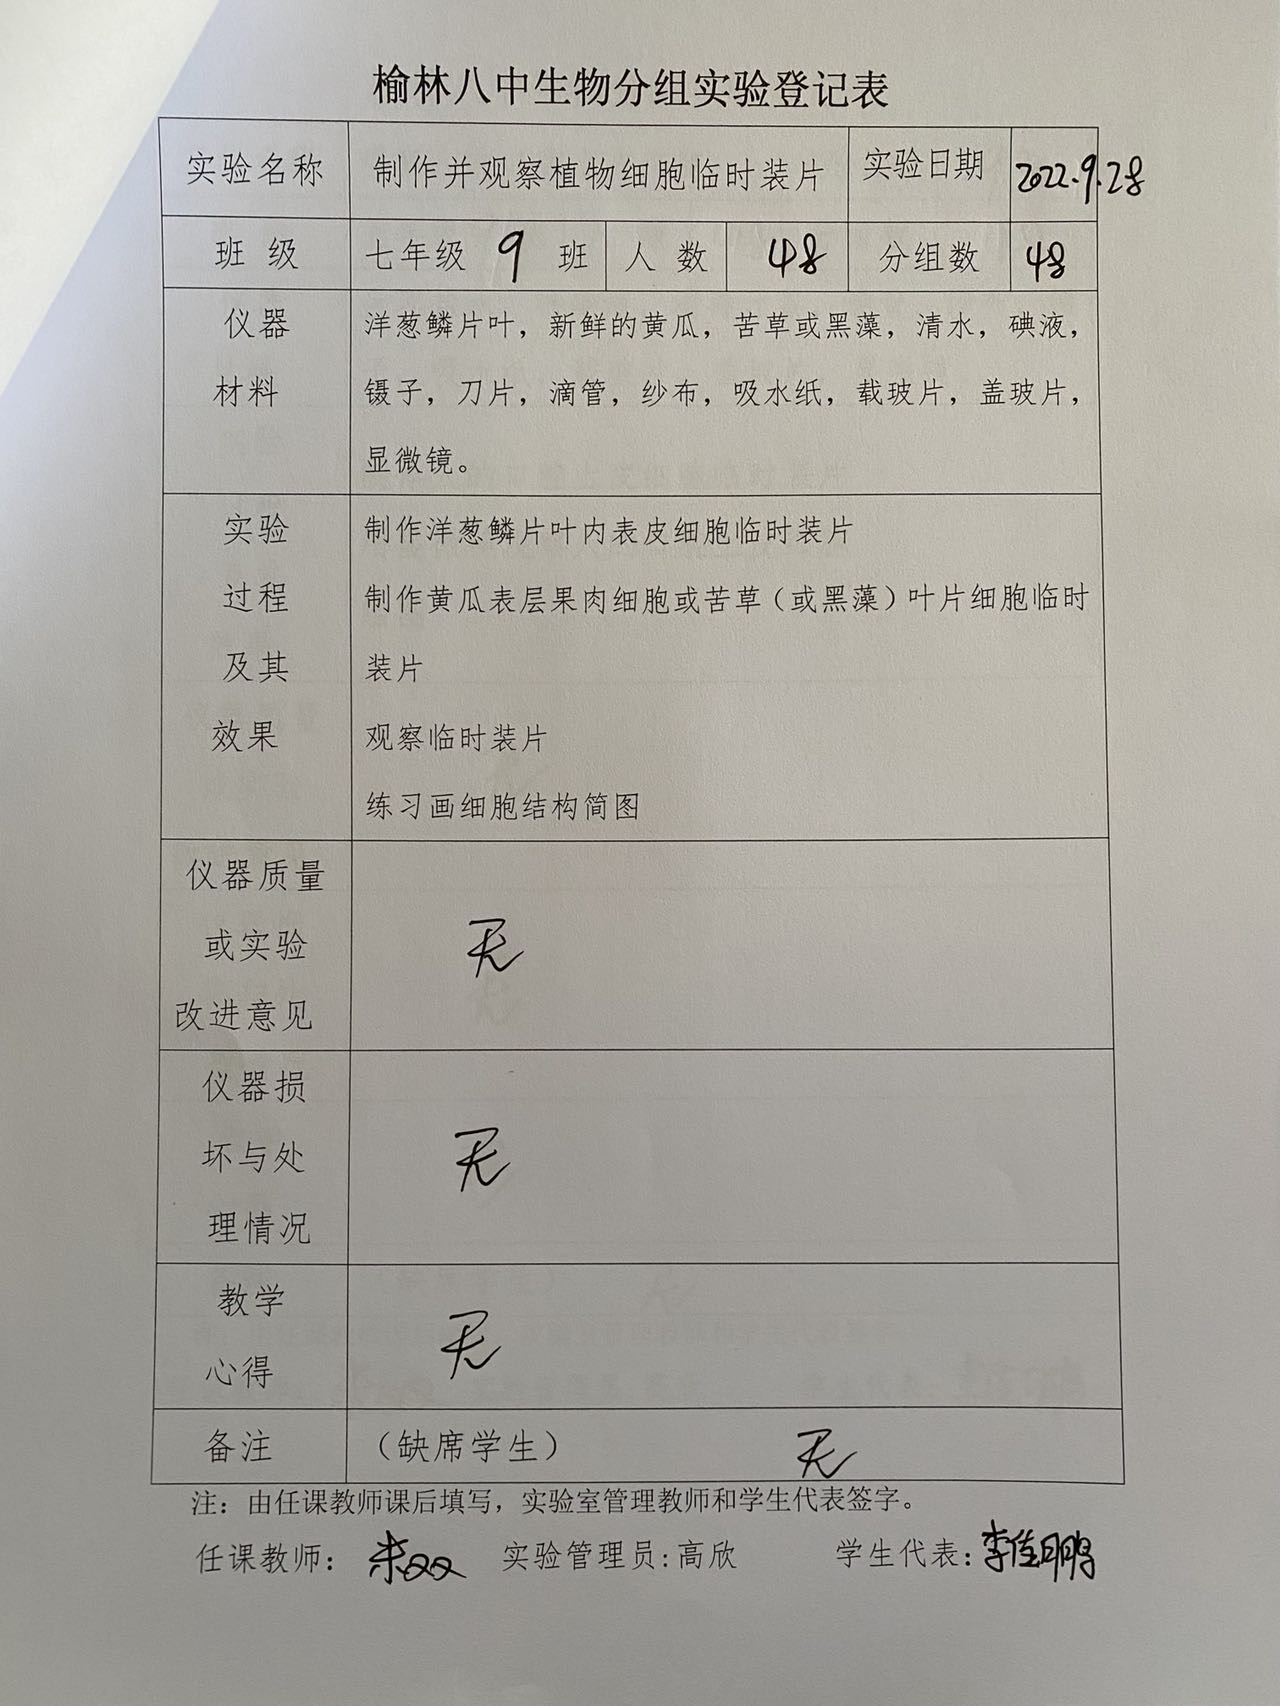 榆林八中生物分组实验登记表
实验名称 制作并观察植物细胞临时装片 实验日期 2022.9.28
班 级 七年级 9 班 人 数 48 分组数 48
仪器 洋葱鳞片叶，新鲜的黄瓜，苦草或黑藻，清水，碘液，
材料 镊子，刀片，滴管，纱布，吸水纸，载玻片，盖玻片，
显微镜。
实验 制作洋葱鳞片叶内表皮细胞临时装片
过程 制作黄瓜表层果肉细胞或苦草（或黑藻）叶片细胞临时
及其 装片
效果 观察临时装片
练习画细胞结构简图
仪器质量
或实验 无
改进意见
仪器损
坏与处 无
理情况
教学 无
心得
备注 （缺席学生） 无
注：由任课教师课后填写，实验室管理教师和学生代表签字。
任课教师： 朱双双 实验管理员:高欣 学生代表:李佳鹏